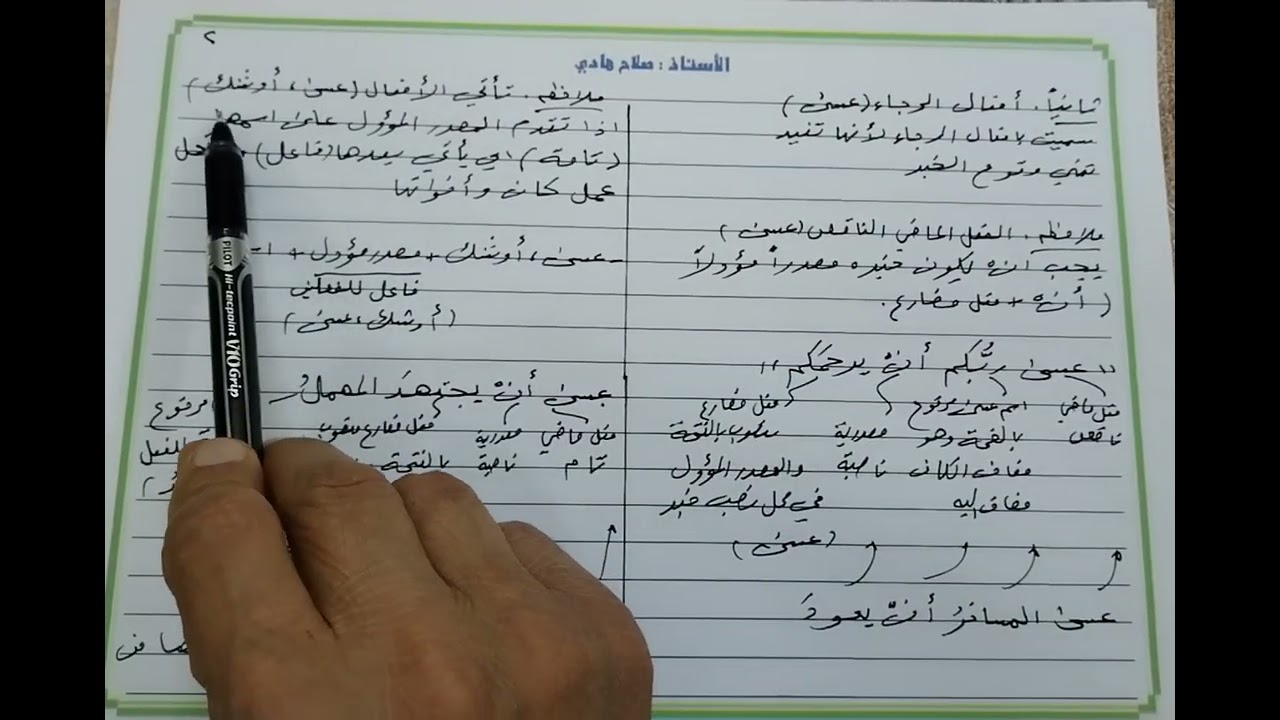 ٢
الأستاذ : صلاح هادي
ثانياً. أفعال الرجاء (عسى)
سميت بافعال الرجاء لأنها تفيد
تمني وقوع الخبر
ملاحظه. الفعل الماضي الناقص (عسى)
يجب أن يكون خبره مصدراً مؤولاً
(أن + فعل مضارع.
"عسى ربُّكم أنْ يرحمَكم"
فعل ماضي اسم عسى مرفوع فعل مضارع
ناقص بالضمة وهو مصدرية منصوب بالفتحة
مضاف الكاف ناصبة والمصدر المؤول
مضاف اليه في محل نصب خبر
(عسى)
عسى المسافرُ أنْ يعودَ
ملاحظه. تأتي الأفعال (عسى، أوشك)
اذا تقدم المصدر المؤول على اسمها
(تامة) اي يأتي بعدها (فاعل)
عمل كان وأخواتها
-عسى، أوشك + مصدر مؤول +
فاعل للفعلين
(أوشك، عسى)
عسى أنْ يجتهدَ المهملُ
فعل ماضي مصدرية فعل مضارع منصوب مرفوع
تام ناصبة بالفتحة للفعل